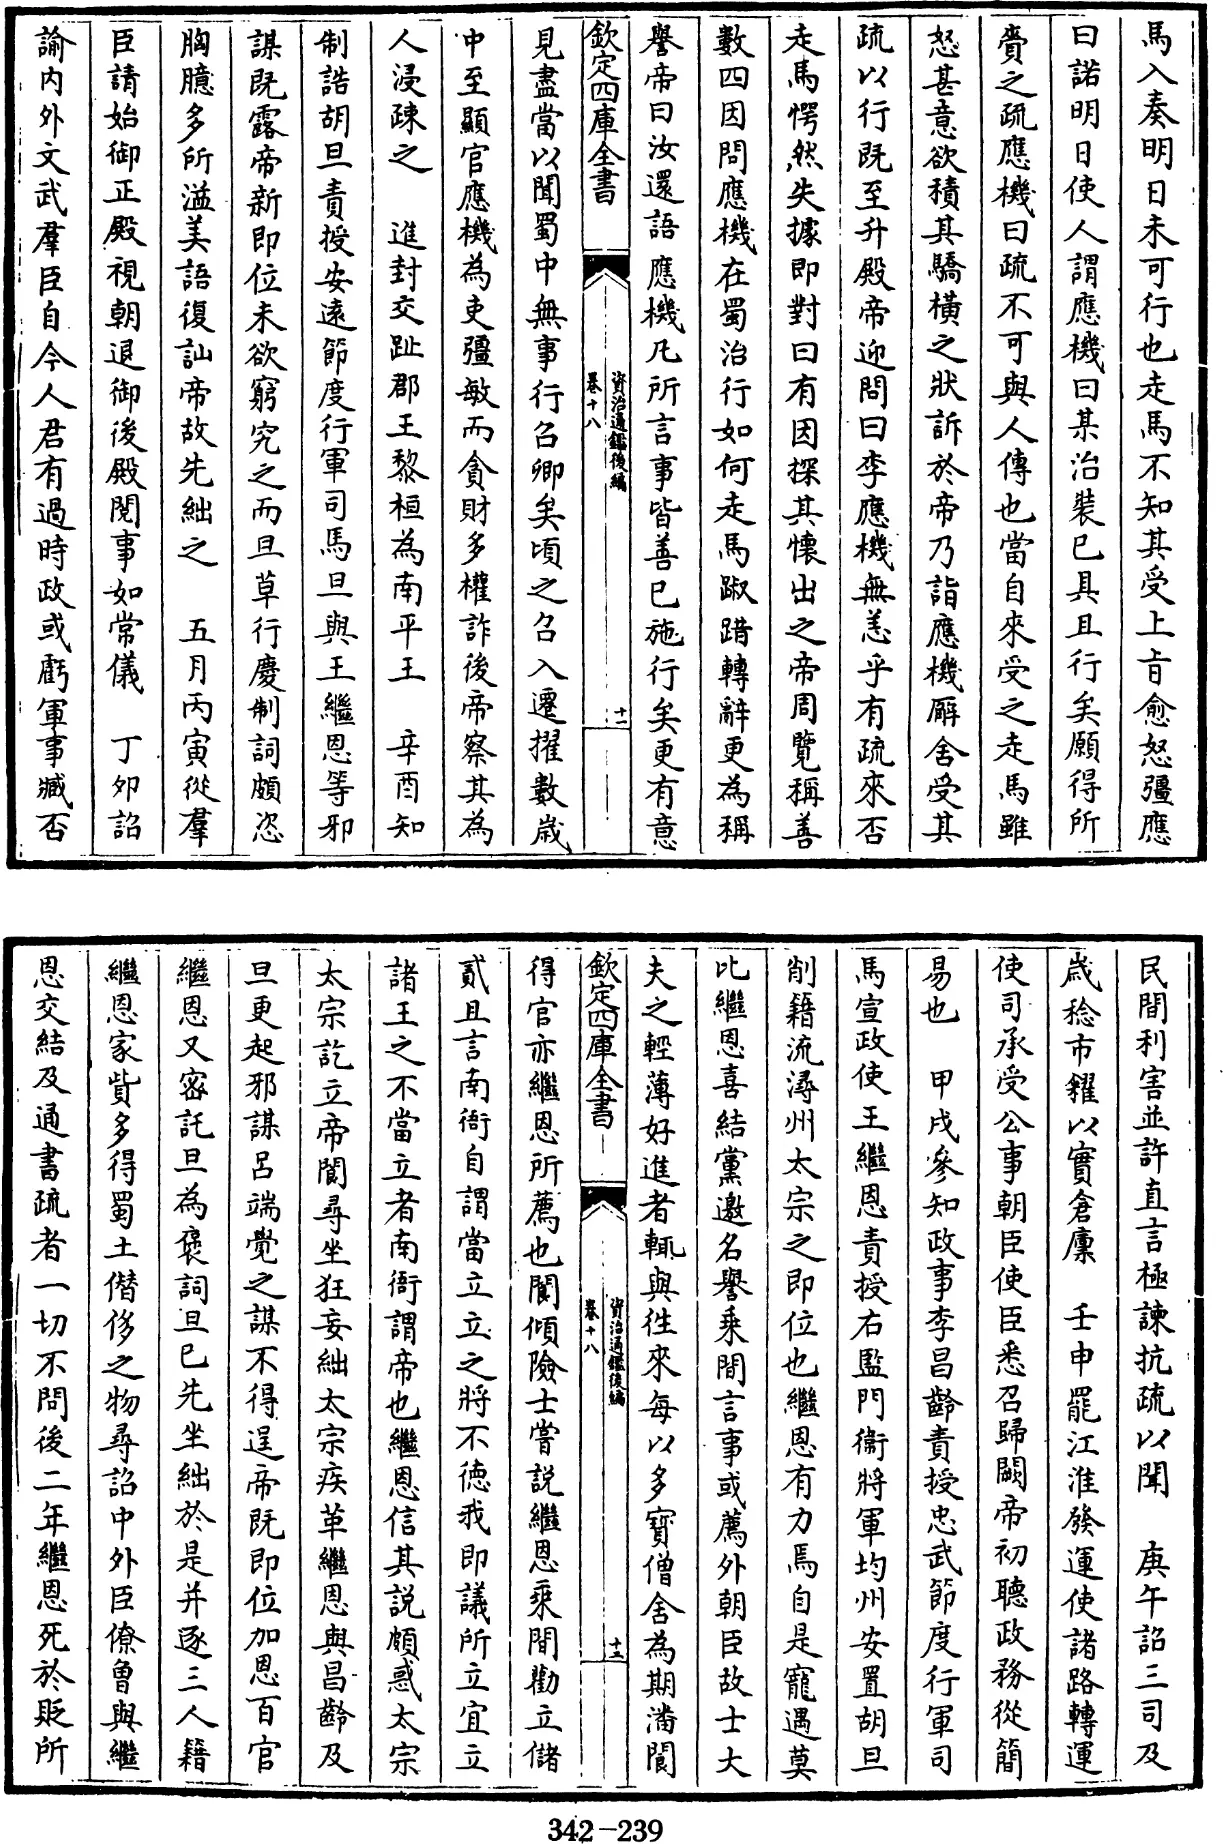 馬入奏明日未可行也走馬不知其受上㫖愈怒彊應
曰諾明日使人謂應機曰某治裝已具且行矣願得所
賫之疏應機曰疏不可與人傳也當自來受之走馬雖
怒甚意欲積其驕橫之狀訴於帝乃詣應機廨舍受其
疏以行既至升殿帝迎問曰李應機無恙乎有疏來否
走馬愕然失據即對曰有因探其懷出之帝周覽稱善
數四因問應機在蜀治行如何走馬踧踖轉辭更為稱
譽帝曰汝還語應機凡所言事皆善已施行矣更有意
欽定四庫全書
資治通鑑後編
卷十八
十一
見盡當以聞蜀中無事行召卿矣頃之召入遷擢數歲
中至顯官應機為吏彊敏而貪財多權詐後帝察其為
人浸疎之　進封交趾郡王黎桓為南平王　辛酉知
制誥胡旦責授安遠節度行軍司馬旦與王繼恩等邪
謀既露帝新即位未欲窮究之而旦草行慶制詞頗恣
胸臆多所溢美語復訕帝故先絀之　五月丙寅從羣
臣請始御正殿視朝退御後殿閲事如常儀　丁夘詔
諭内外文武羣臣自今人君有過時政或虧軍事臧否
民間利害並許直言極諫抗疏以聞　庚午詔三司及
歲稔市糴以實倉廩　壬申罷江淮發運使諸路轉運
使司承受公事朝臣使臣悉召歸闕帝初聽政務從簡
易也　甲戌參知政事李昌齡責授忠武節度行軍司
馬宣政使王繼恩責授右監門衞將軍均州安置胡旦
削籍流潯州太宗之即位也繼恩有力焉自是寵遇莫
比繼恩喜結黨邀名譽乘間言事或薦外朝臣故士大
夫之輕薄好進者輒與徃來每以多寳僧舍為期潘閬
欽定四庫全書
資治通鑑後編
卷十八
十二
得官亦繼恩所薦也閬傾險士嘗説繼恩乘間勸立儲
貳且言南衙自謂當立立之將不徳我即議所立宜立
諸王之不當立者南衙謂帝也繼恩信其説頗惑太宗
太宗訖立帝閬尋坐狂妄絀太宗疾革繼恩與昌齡及
旦更起邪謀呂端覺之謀不得逞帝既即位加恩百官
繼恩又宻託旦為襃詞旦已先坐絀於是并逐三人籍
繼恩家貲多得蜀土僭侈之物尋詔中外臣僚曾與繼
恩交結及通書疏者一切不問後二年繼恩死於貶所
342-239